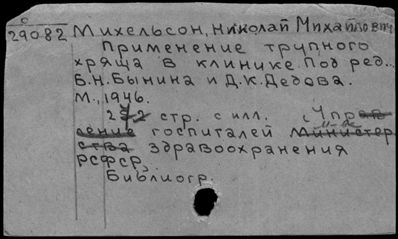 29082 Михельсон, Николай Михайлович
Применение трупного
хряща в клинике. Под ред..
Б.Н.Бынина и Д.К.Дедова.
М., 1946.
стр. с илл. (Управ
ление госпиталей Министер
ства здравоохранения
РСФСР.
Библиогр.